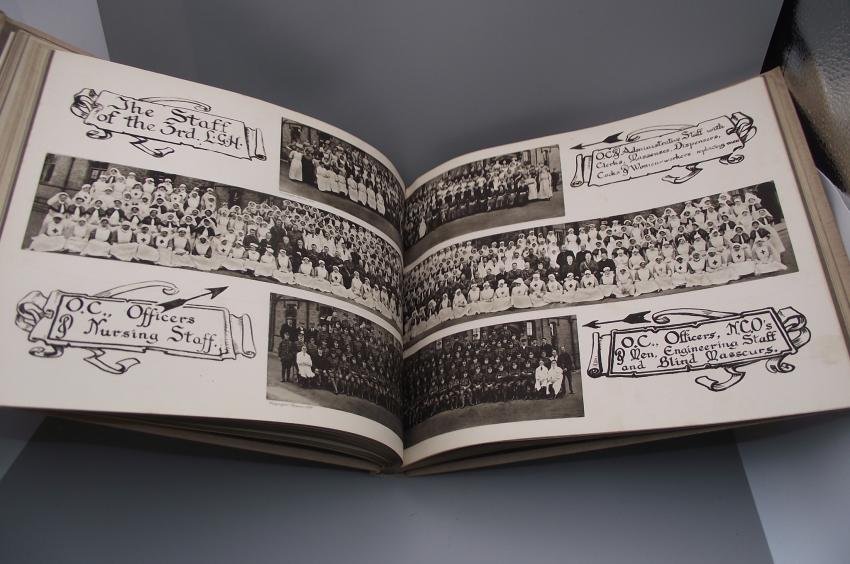 The Staff
of the 3rd. L.G.H.
O.C., Officers
& Nursing Staff.
O.C., Administrative Staff with
Clerks, Masseuses, Dispensers,
Cooks & Women workers replacing men
O.C., Officers, N.C.O's
& Men, Engineering Staff
and Blind Masseurs.